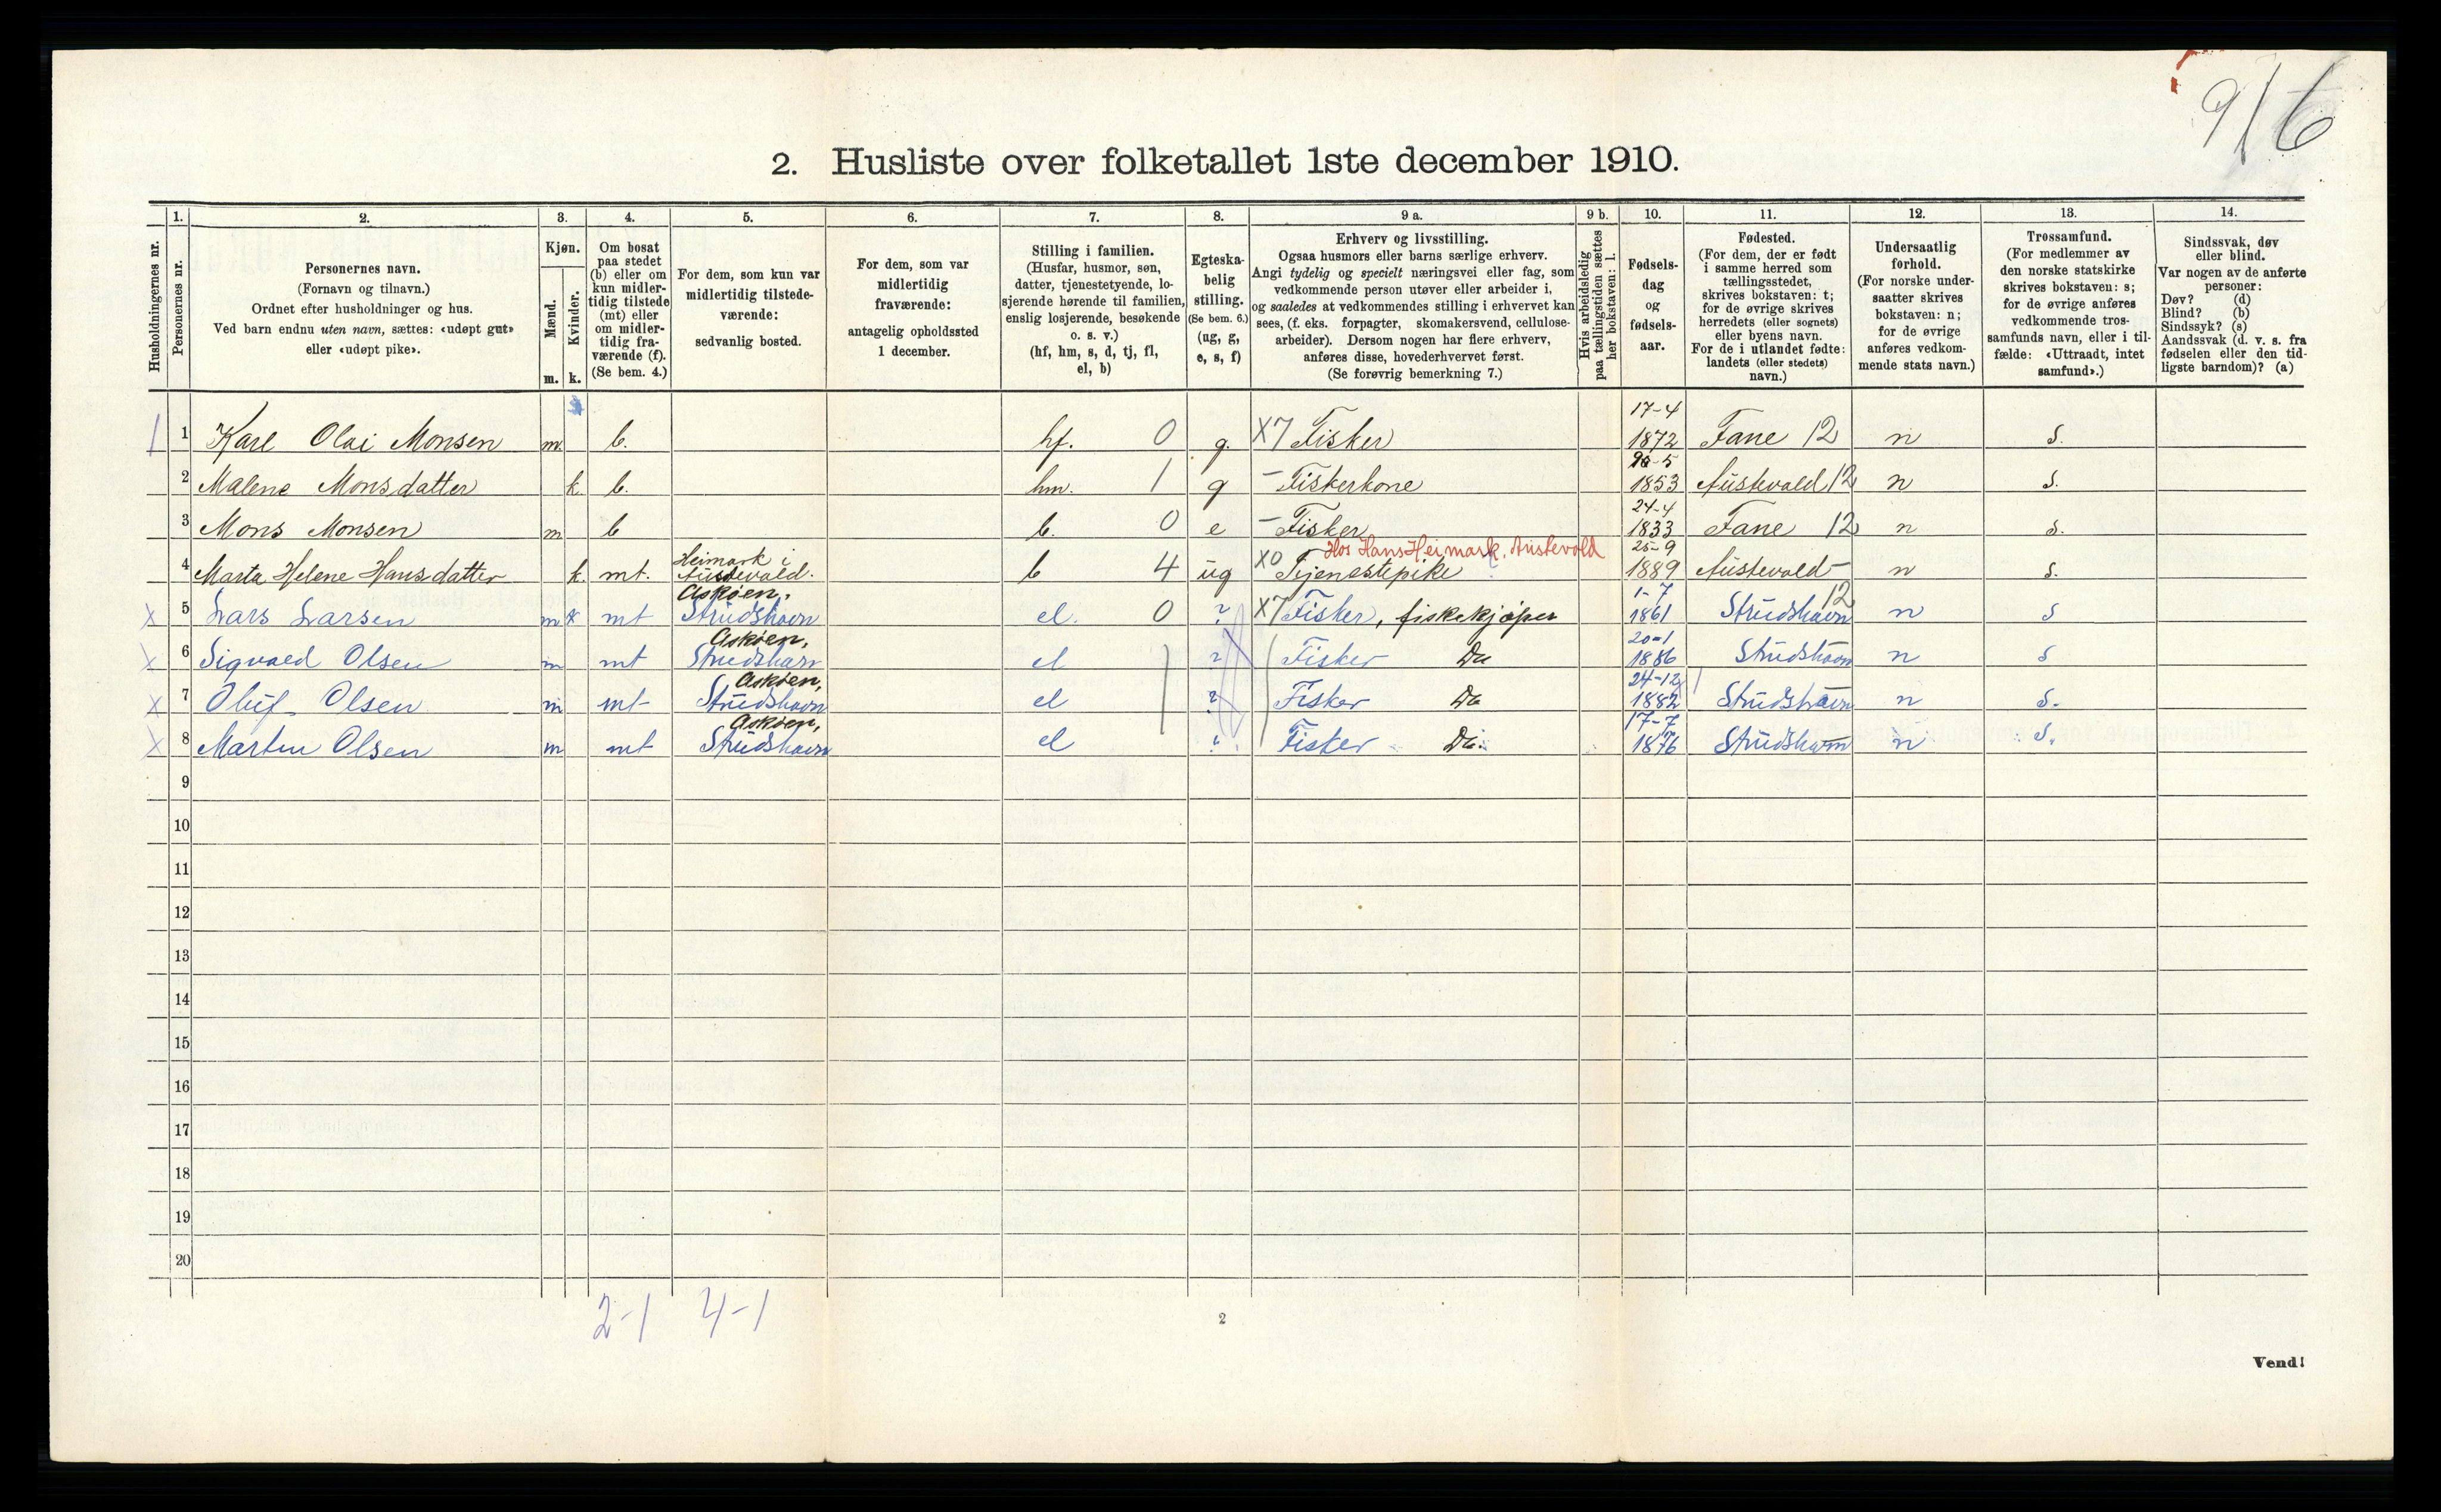 916
2. Husliste over folketallet 1ste december 1910.
Husholdningernes nr.
1. Personernes nr.
2. Personernes navn. (Fornavn og tilnavn.) Ordnet efter husholdninger og hus. Ved barn endnu uten navn, sættes: «udøpt gut» eller «udøpt pike».
3. Kjøn. Mænd. m. Kvinder. k.
4. Om bosat paa stedet (b) eller om kun midler-tidig tilstede (mt) eller om midler-tidig fra-værende (f). (Se bem. 4.)
5. For dem, som kun var midlertidig tilstede-værende: sedvanlig bosted.
6. For dem, som var midlertidig fraværende: antagelig opholdssted 1 december.
7. Stilling i familien. (Husfar, husmor, søn, datter, tjenestetyende, lo-sjerende hørende til familien, enslig losjerende, besøkende o. s. v.) (hf, hm, s, d, tj, fl, el, b)
8. Egteska-belig stilling. (Se bem. 6.) (ug, g, e, s, f)
9 a. Erhverv og livsstilling. Ogsaa husmors eller barns særlige erhverv. Angi tydelig og specielt næringsvei eller fag, som vedkommende person utøver eller arbeider i, og saaledes at vedkommendes stilling i erhvervet kan sees, (f. eks. forpagter, skomakersvend, cellulose-arbeider). Dersom nogen har flere erhverv, anføres disse, hovederhvervet først. (Se forøvrig bemerkning 7.)
9 b. Hvis arbeidsledig paa tællingstiden sættes her bokstaven: l.
10. Fødsels-dag og fødsels-aar.
11. Fødested. (For dem, der er født i samme herred som tællingsstedet, skrives bokstaven: t; for de øvrige skrives herredets (eller sognets) eller byens navn. For de i utlandet fødte: landets (eller stedets) navn.)
12. Undersaatlig forhold. (For norske under-saatter skrives bokstaven: n; for de øvrige anføres vedkom-mende stats navn.)
13. Trossamfund. (For medlemmer av den norske statskirke skrives bokstaven: s; for de øvrige anføres vedkommende tros-samfunds navn, eller i til-fælde: «Uttraadt, intet samfund».)
14. Sindssvak, døv eller blind. Var nogen av de anførte personer: Døv? (d) Blind? (b) Sindssyk? (s) Aandssvak (d. v. s. fra fødselen eller den tid-ligste barndom)? (a)
1 1 Karl Olai Monsen m b. hf. 0 g. X7 Fisker 17-4 1872 Fane 12 n s.
2 Malene Monsdatter k. b. hm. 1 g – Fiskerkone 5 1853 Austevold 12 n s.
3 Mons Monsen m b b. 0 e – Fisker 24-4 1833 Fane 12 n s.
4 Marta Helene Hansdatter k. mt. Heimark i Austevold. b 4 ug X0 Tjenestepike Hos Hans Heimark, Austevold 25-9 1889 Austevold – n s.
X 5 Lars Larsen m mt Askøen, Strudshavn el. 0 ? X7 Fisker, fiskekjøper 1-7 1861 Strudshavn 12 n s
X 6 Sigvald Olsen m mt Askøen, Strudshavn el ? Fisker Do 20-1 1886 Strudshavn n s
X 7 Oluf Olsen m mt Askøen, Strudshavn el ? Fisker Do 24-12 1882 Strudshavn n s.
X 8 Martin Olsen m mt Askøen, Strudshavn el ? Fisker Do. 17-7 1876 Strudshavn n s.
9
10
11
12
13
14
15
16
17
18
19
20
2-1 4-1
2
Vend!